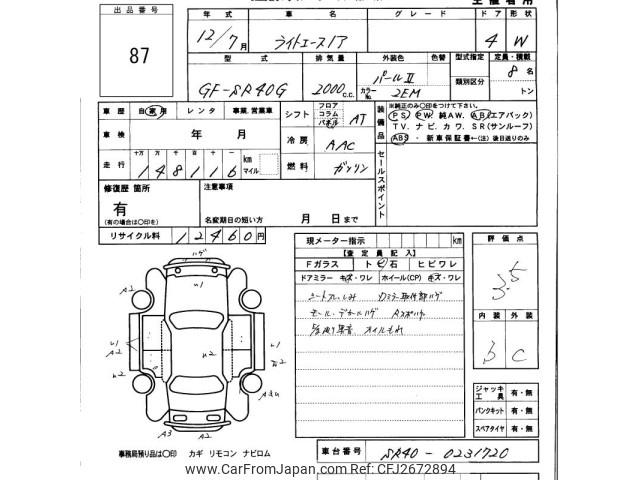 出品番号
87
年式 車名 グレード ドア 形状
12/7月 ライトエースノア 4 W
型式 排気量 外装色 色替 型式指定 定員・積載
GF-SR40G 2000c.c. パールⅡ カラーNo. 2EM 類別区分 8名 トン
車歴 自家用 レンタ 事業,営業車
車検 年 月
走行 十万 万 千 百 十 148116 km マイル
シフト フロア コラム パネル AT
冷房 AAC
燃料 ガソリン
装備品
※純正のみ〇印をつけて下さい。
PS PW 純AW. AB(エアバック)
TV. ナビ. カワ. SR(サンルーフ)
ABS ・新車保証書←(注)後日送りのみ
セールスポイント
修復歴 箇所
有
(有の場合は〇印を)
注意事項
名変期日の短い方 月 日まで
リサイクル料 12460円
現メーター指示 km
【査定員記入】
Fガラス ト ビ 石 ヒビワレ
ドアミラー キズ・ワレ ホイール(CP) キズ・ワレ
オイルもれ
評価点
3.5
内装 外装
3 C
ハゲ
U1
A2
U1
A2
U2
U2
A3
A2
ジャッキ工具 有・無
パンクキット 有・無
スペアタイヤ 有・無
事務局預り品は〇印 カギ リモコン ナビロム
車台番号 SR40-0231720
www.CarFromJapan.com - CFJ2672894